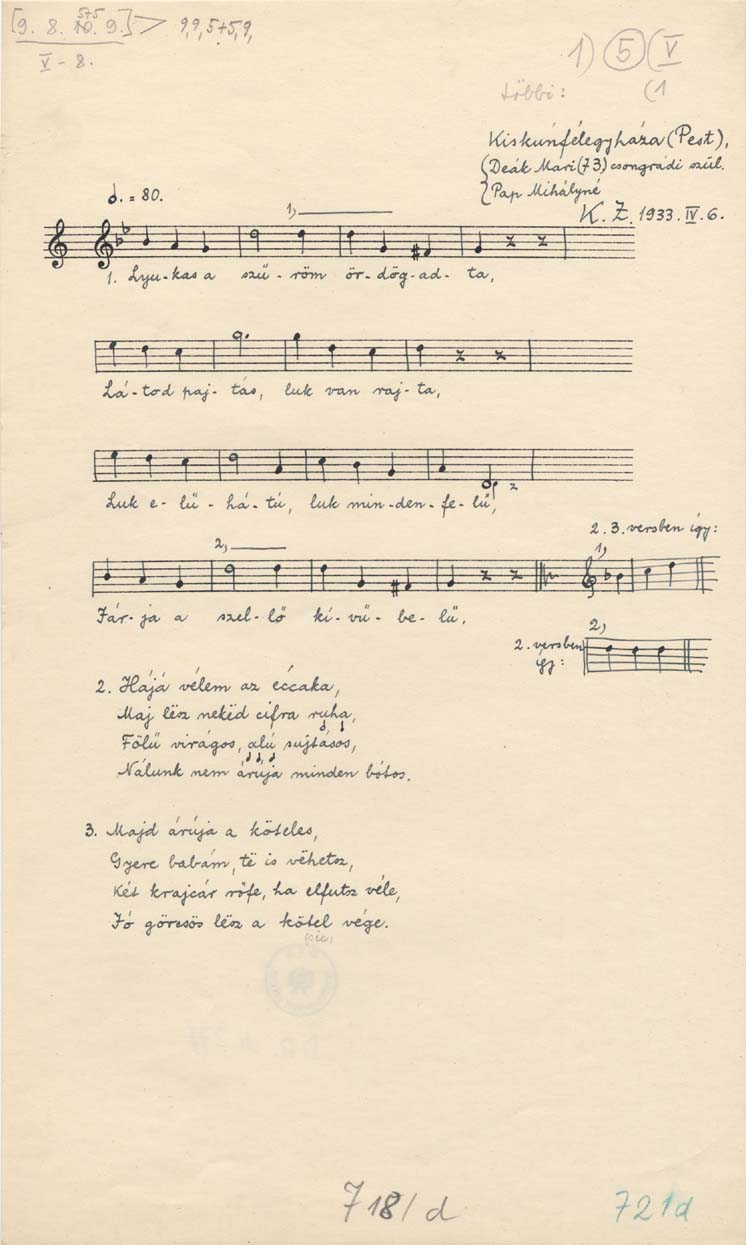 [9. 8. 5+5 10. 9.] > 9, 9, 5+5, 9,
V - 8.
1) 5 (V
többi: (1
Kiskúnfélegyháza (Pest),
(Deák Mari (73) csongrádi szül.
Pap Mihályné
K. Z. 1933. IV. 6.
= 80.
1,
1. Lyu-kas a szű-röm ör-dög-ad-ta,
Lá-tod paj-tás, luk van raj-ta,
Luk e-lű-há-tú, luk min-den-fe-lű,
2. 3. versben így:
2, 1,
Jár-ja a szel-lő ki-vű-be-lű.
2. versben 2,
így:
2. Hájá vélem az éccaka,
Maj lësz nekëd cifra ruha,
Fölű virágos, alú sujtásos,
Nálunk nem árúja minden bótos.
3. Majd árúja a köteles,
Gyere babám, të is vëhetsz,
Két krajcár rőfe, ha elfutsz véle,
Jó görcsös lësz a kötel vége.
(sic)
718/d
721d